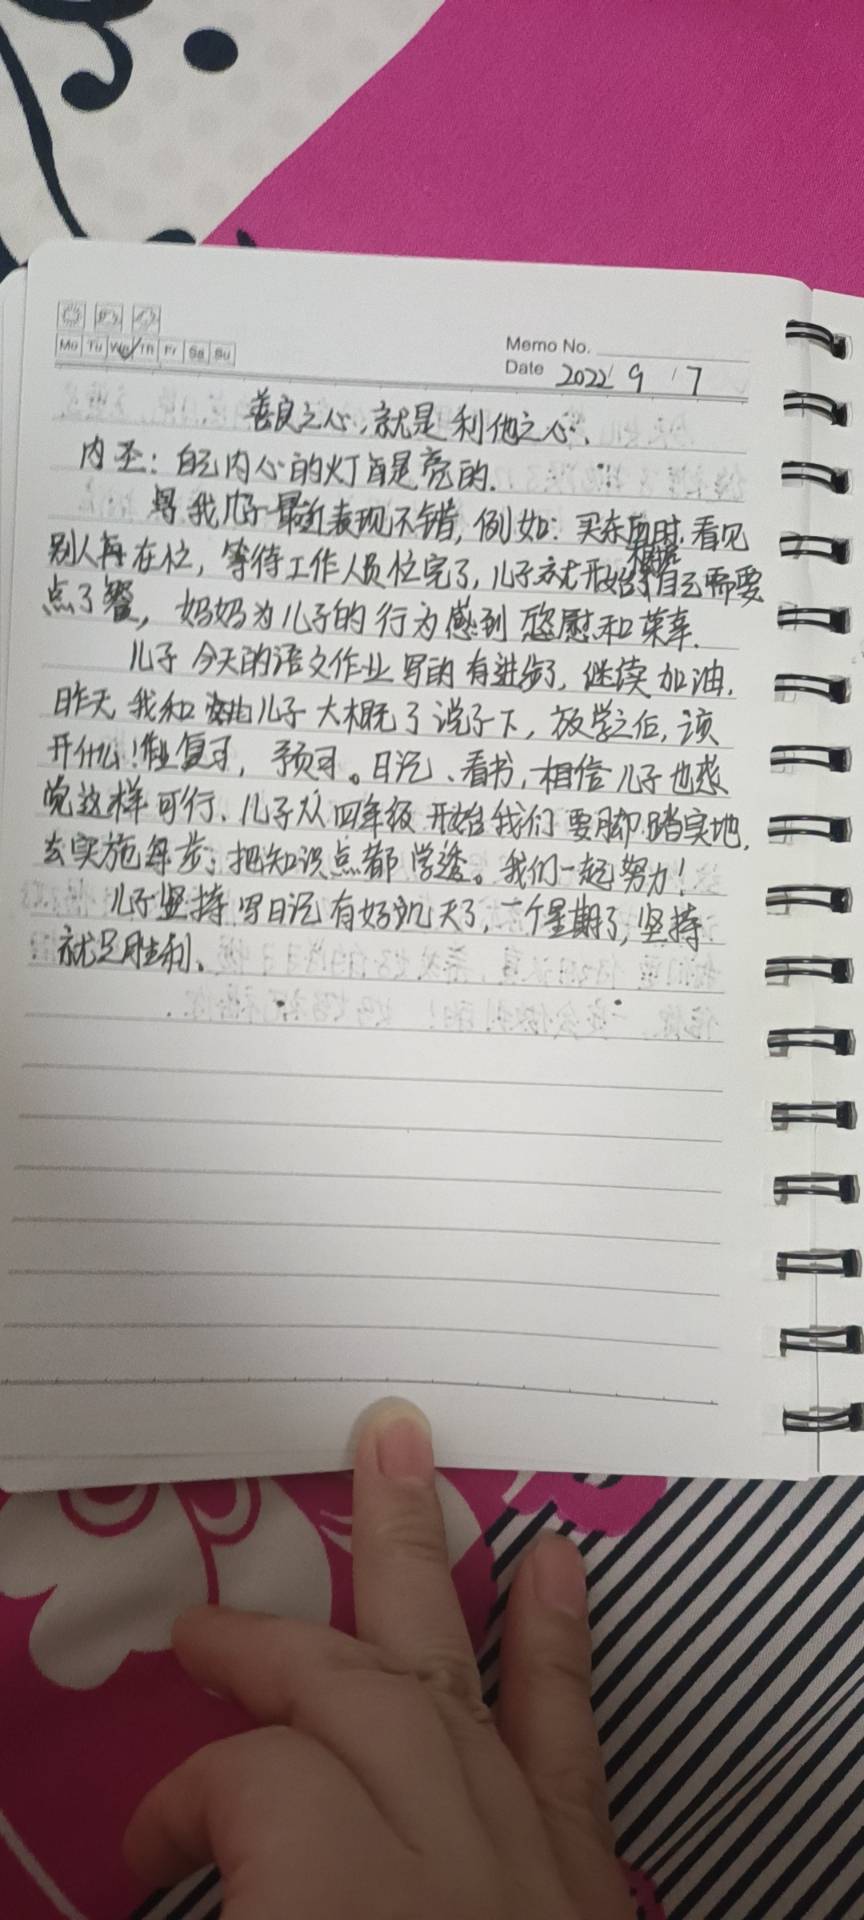 Mo Tu We Th Fr Sa Su
Memo No.
Date 2022 9 7
善良之心,就是利他之心.
内圣:自己内心的灯自是亮的.
我儿子最近表现不错,例如:买东西时,看见
别人再在忙,等待工作人员忙完了,儿子就开始根据自己需要
点了餐,妈妈为儿子的行为感到慰和荣幸.
儿子今天的语文作业写的有进步了,继续加油.
昨天我和儿子大概了说了下,放学之后,该
开什么!作业复习,预习。日记、看书,相信儿子也感
觉这样可行.儿子从四年级开始我们要脚踏实地,
去实施每步;把知识点都学透。我们一起努力!
儿子坚持写日记有好几天了,一个星期了,坚持
就是胜利.